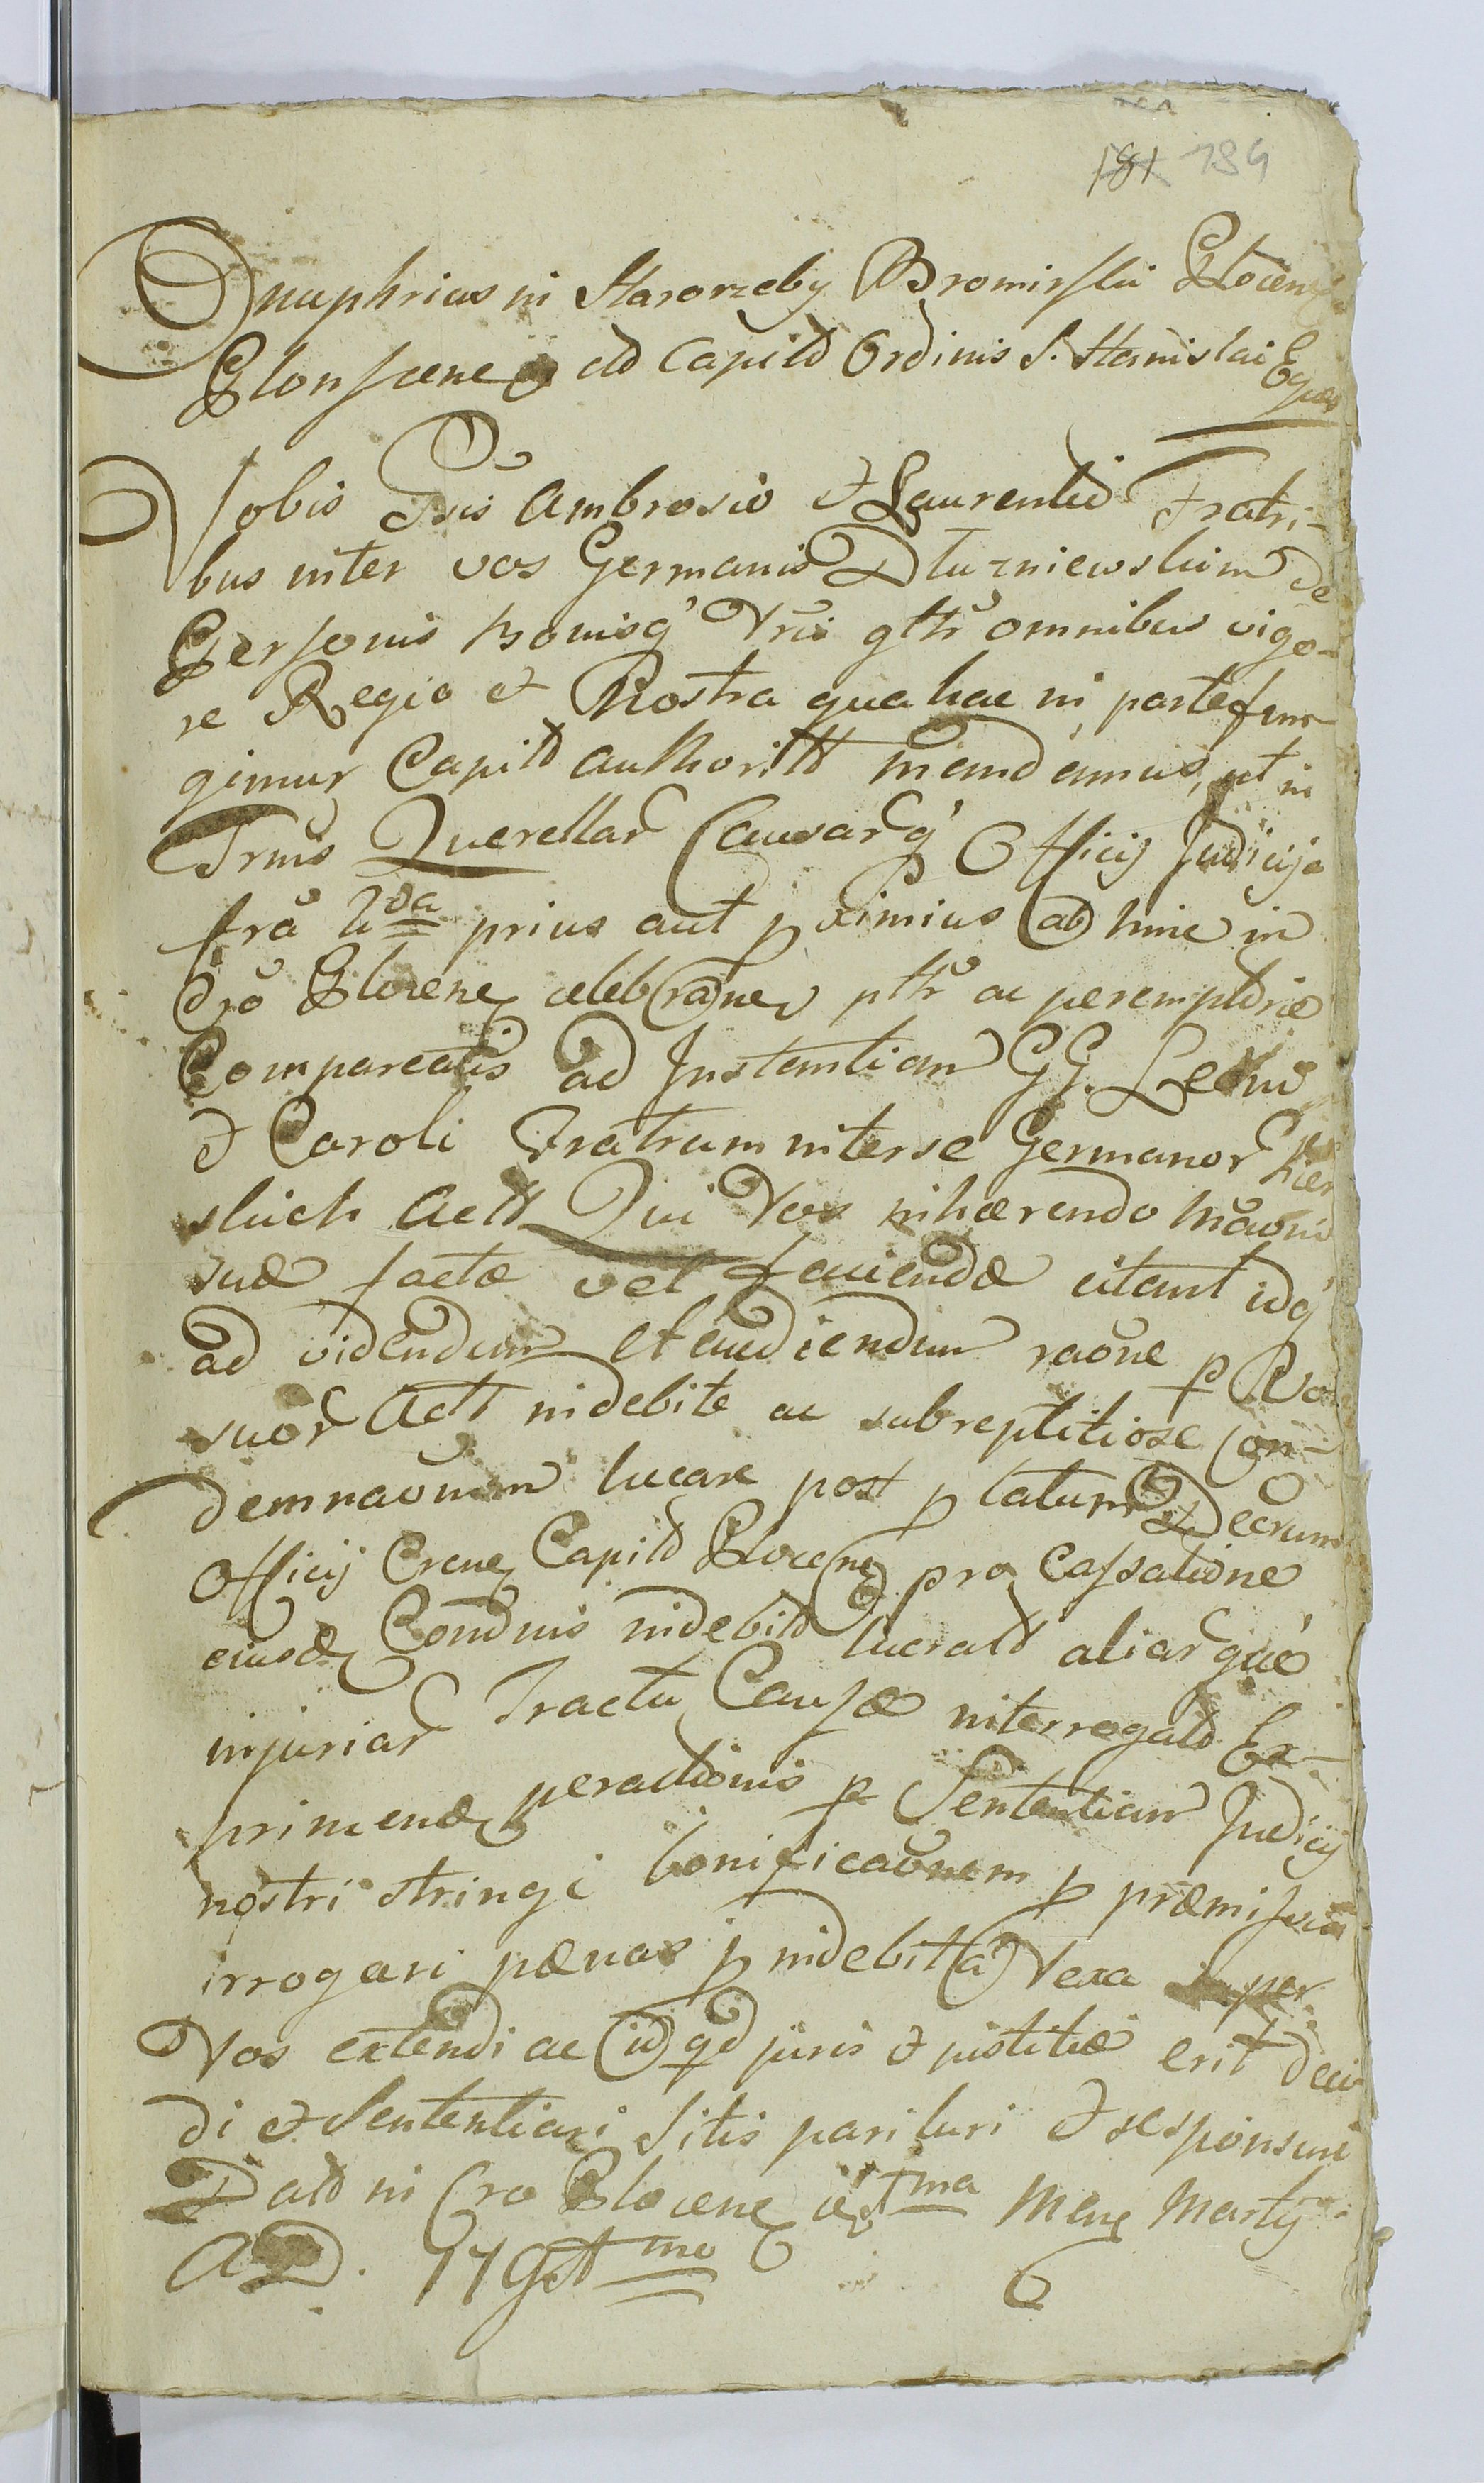 181 184
Onuphrius in Starorzeby Bromirski Plocen
Plonscen Capit Ordinis S. Stanislai Eques
Vobis Gsis Ambrosio et Laurentio Fratri-
bus inter vos Germanis Dłuzniewskim de
Personis bonisq' Vris gltr omnibus vigo-
re Regio et Nostra qua hac in parte fun-
gimur Capit authoritt mandamus, ut in
Trnis Querellar Causarq' Officij Judicija
fra 2da prius aut proximius ab hinc in
Cro Plocen celebran ptr ac peremptorie
Compareatis ad Instantiam GG.
et Caroli Fratrum inter se Germanor
skich Actt Qui Vos inhærendo
suæ factæ vel faciendæ citant idq'
ad videndum et audiendum raõne p Vos
suor Actt indebite ac subreptitiose Con-
demnaõnem lucare post platum Decrum
Officij Cren Capit Plocen pro Cassatione
eiusd Condnis indebit lucrat aliarque
injuriar Tractu Causæ interrogat Ex-
primend peractionis p Sententiam Judicij
nostri stringi bonificaõnem p præmissis
irrogari pænas p indebita Vexa super
Vos extendi ac id qd juris et justitiæ erit deci-
di et Sententiari Sitis parituri et responsuri
Datt in Cro Plocen ma Men Martij
AD. 179 mo